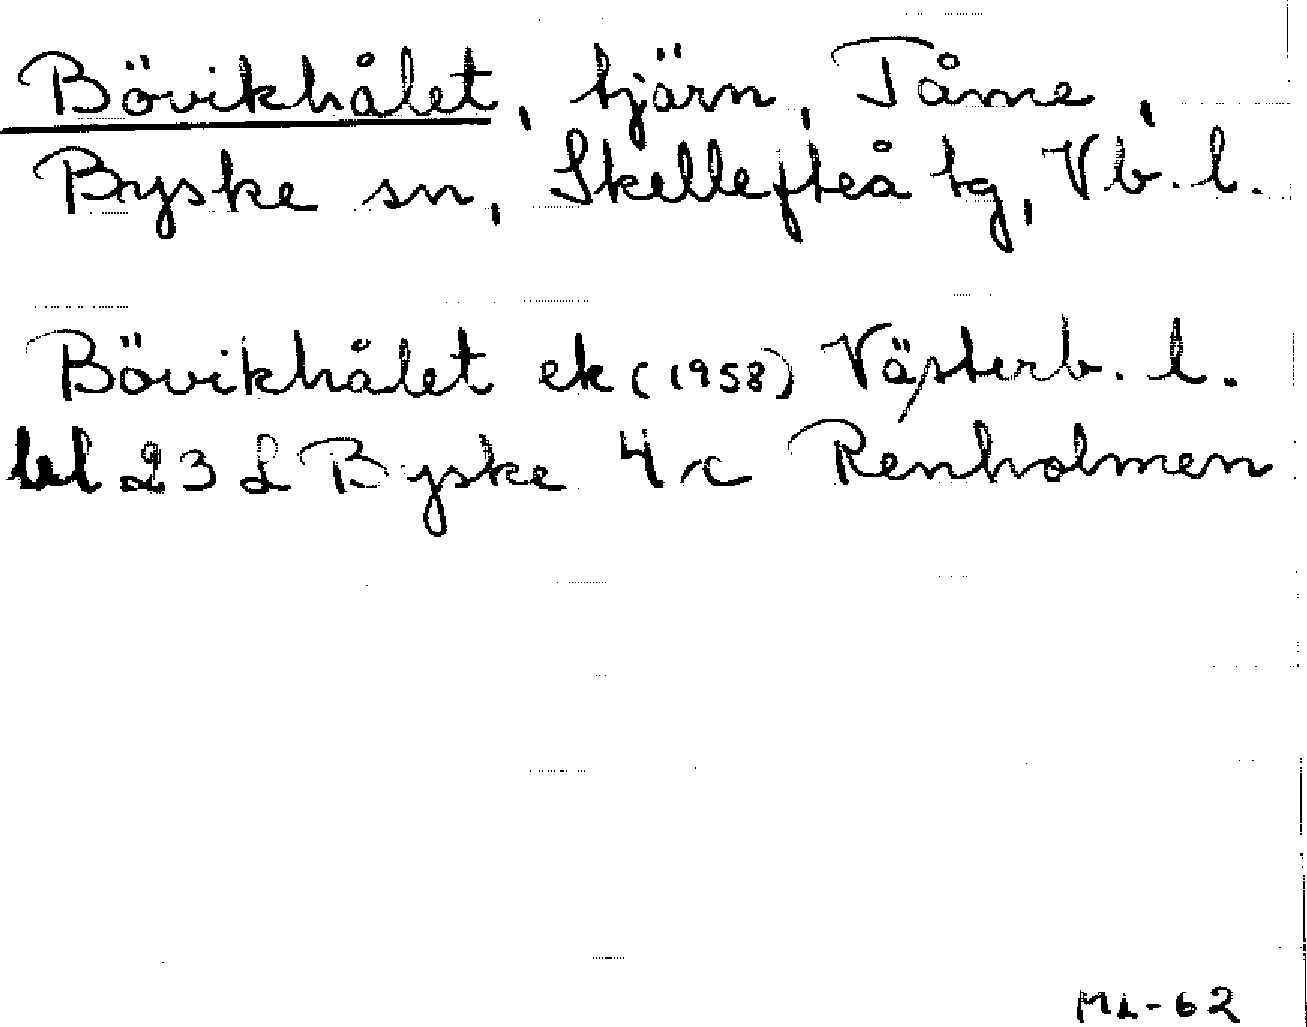 Bövikhålet, tjärn, Tåme,
Byske sn, Skellefteå tg, Vb. l.
Bövikhålet ek (1958) Västerb. l.
bl 23 L Byske 4 c Renholmen
ML-62